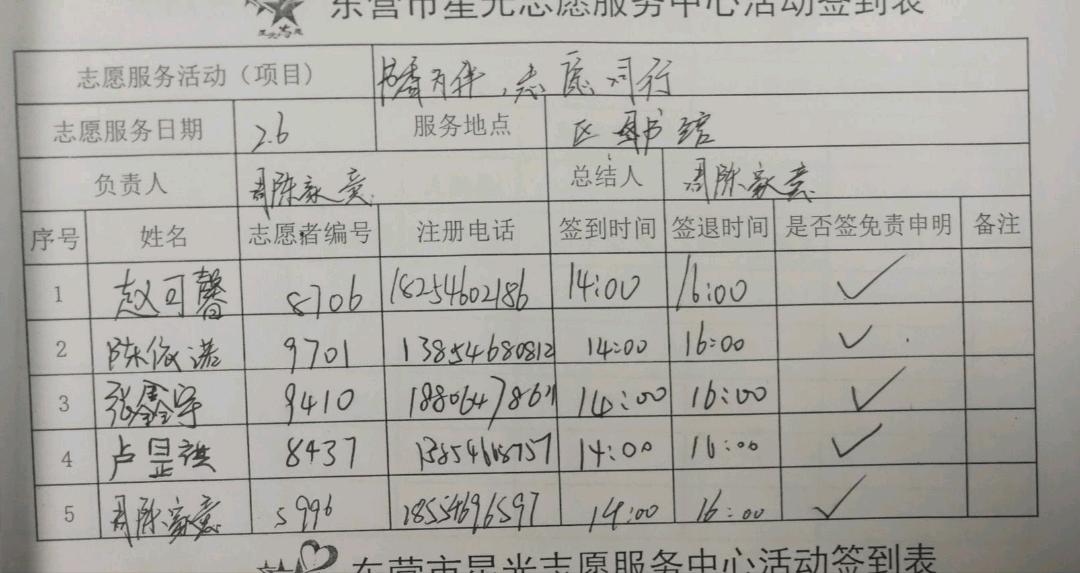 东营市星光志愿服务中心活动签到表
志愿服务活动（项目） 书香为伴，志愿同行
志愿服务日期 2.6 服务地点 区图书馆
负责人 周陈家意 总结人 周陈家意
序号 姓名 志愿者编号 注册电话 签到时间 签退时间 是否签免责申明 备注
1 赵可馨 8706 18254602186 14:00 16:00 ✓
2 陈依诺 9701 13854680812 14:00 16:00 ✓
3 张鑫宇 9410 14:00 16:00 ✓
4 卢昱祺 8437 14:00 16:00 ✓
5 周陈家意 5996 18554696597 14:00 16:00 ✓
东营市星光志愿服务中心活动签到表